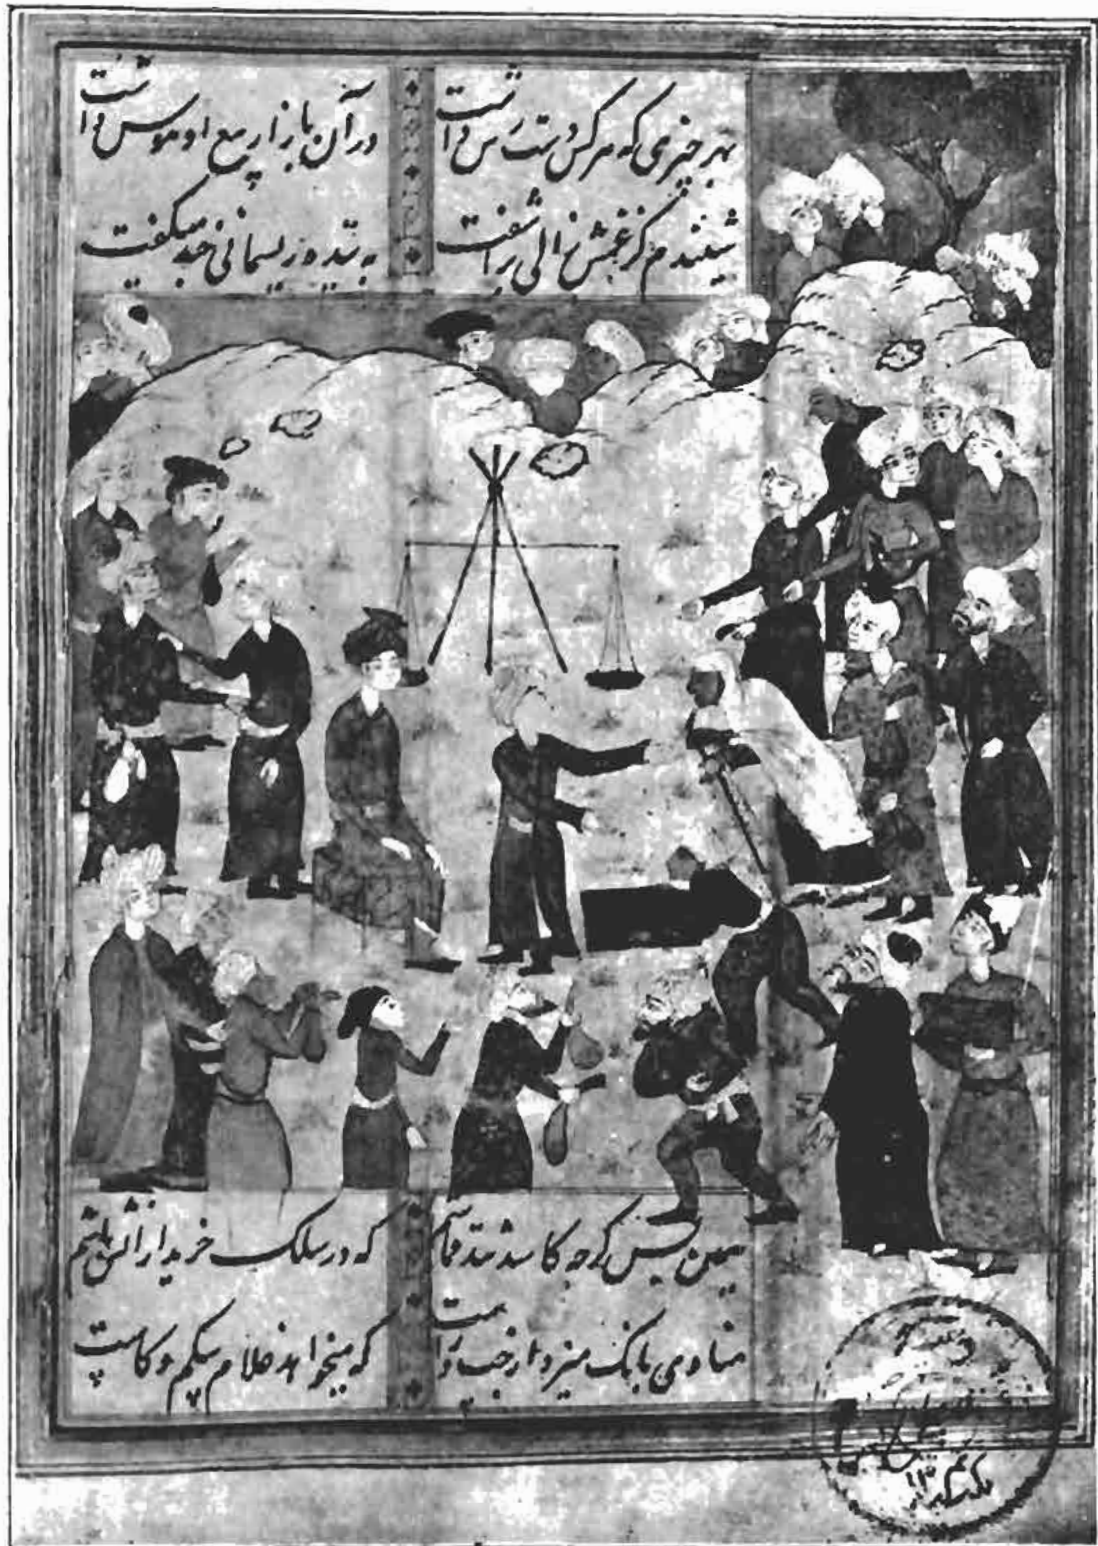 بهر چیزی که هر کس دست رس داشت در آن بازار بیع او هوس داشت
شنیدم کز غمش زالی برآشفت به تنیده ریسمانی چند میگفت
همین بس گرچه کاسد شد قماشم که در سلک خریدارانش باشم
منادی بانک میزد از چپ و راست که میخواهد غلام بیکم و کاست